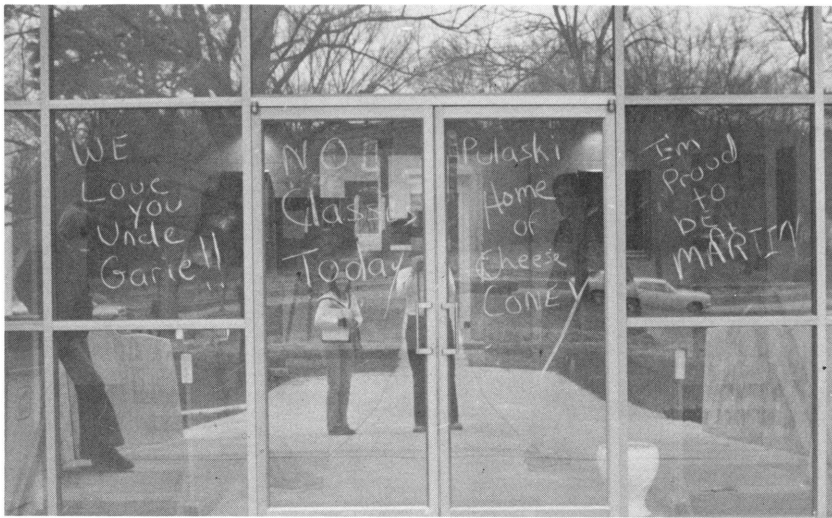 WE
Love
you
Uncle
Garie!!
NO
Classes
Today
Pulaski
Home
of
Cheese
CONEY
I'm
Proud
to
be A
MARTIN